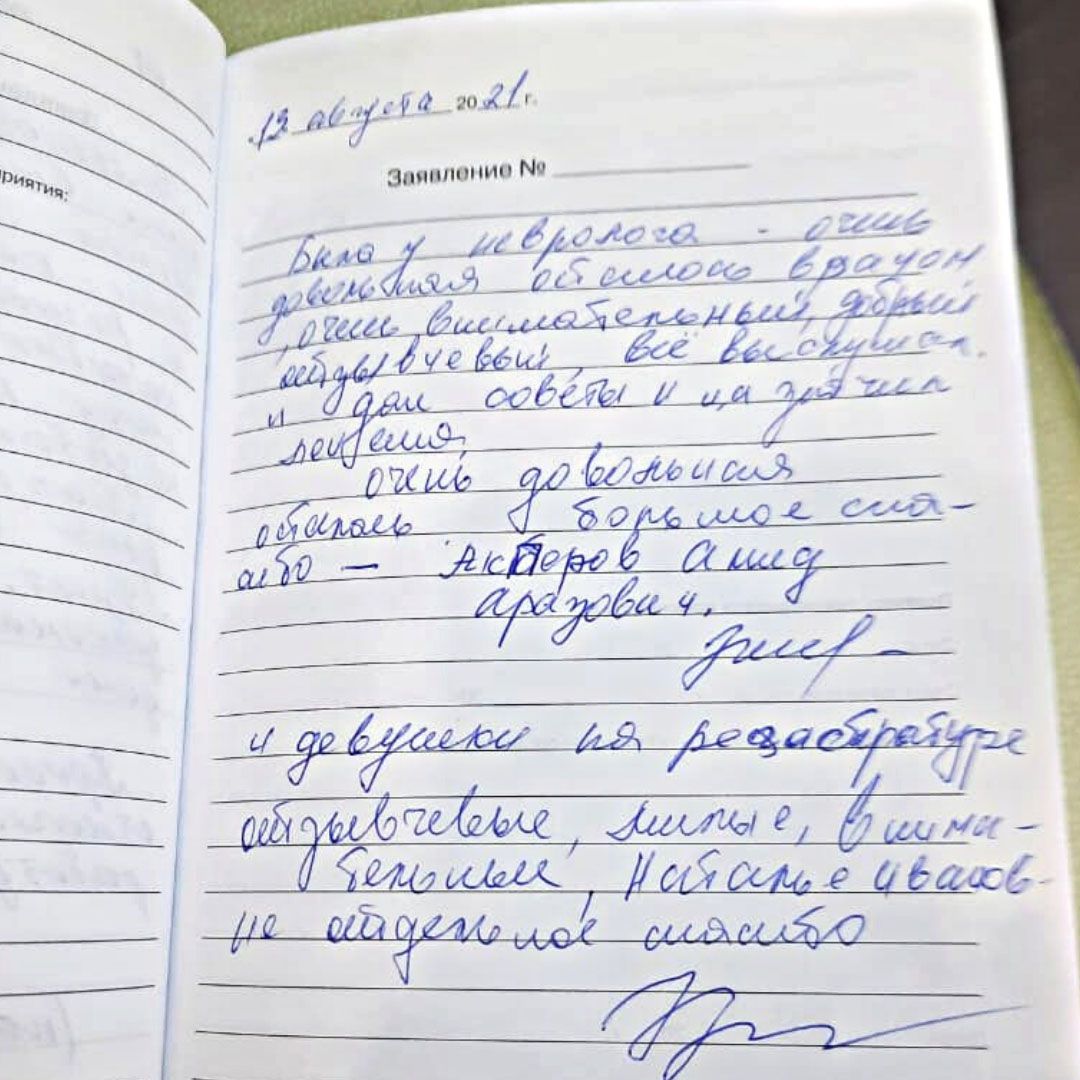 приятия:
13 августа 2021 г.
Заявление №
Была у невролога - очень
довольная осталась врачом
, очень внимательный, добрый
отзывчевый, всё выслушал.
и дал советы и назначил
лечения,
очень довольная
осталась большое спа-
сибо - Акперов Амид
Аразович.
и девушки на регистратуре
отзывчевые, милые, внима-
тельные, Наталье Иванов-
не отдельное спасибо